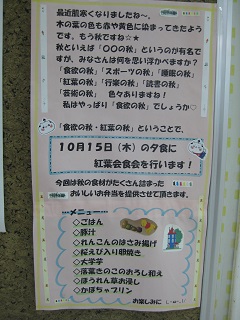 最近肌寒くなりましたね～。
木の葉の色も赤や黄色に染まってきたよう
です。もう秋ですね☆★
秋といえば「○○の秋」というのが有名で
すが、みなさんは何を思い浮かべますか？
「食欲の秋」「スポーツの秋」「睡眠の秋」
「紅葉の秋」「行楽の秋」「読書の秋」
「芸術の秋」　色々ありますね！
私はやっぱり「食欲の秋」でしょうか♡
「食欲の秋・紅葉の秋」ということで、
１０月１５日（木）の夕食に
紅葉会食会を行います！
今回は秋の食材がたくさん詰まった
おいしいお弁当を提供させて頂きます。
メニュー
◇ごはん
◇豚汁
◇れんこんのはさみ揚げ
◇桜えび入り卵焼き
◇大学芋
◇落葉きのこのおろし和え
◇ほうれん草お浸し
◇かぼちゃプリン
お楽しみに